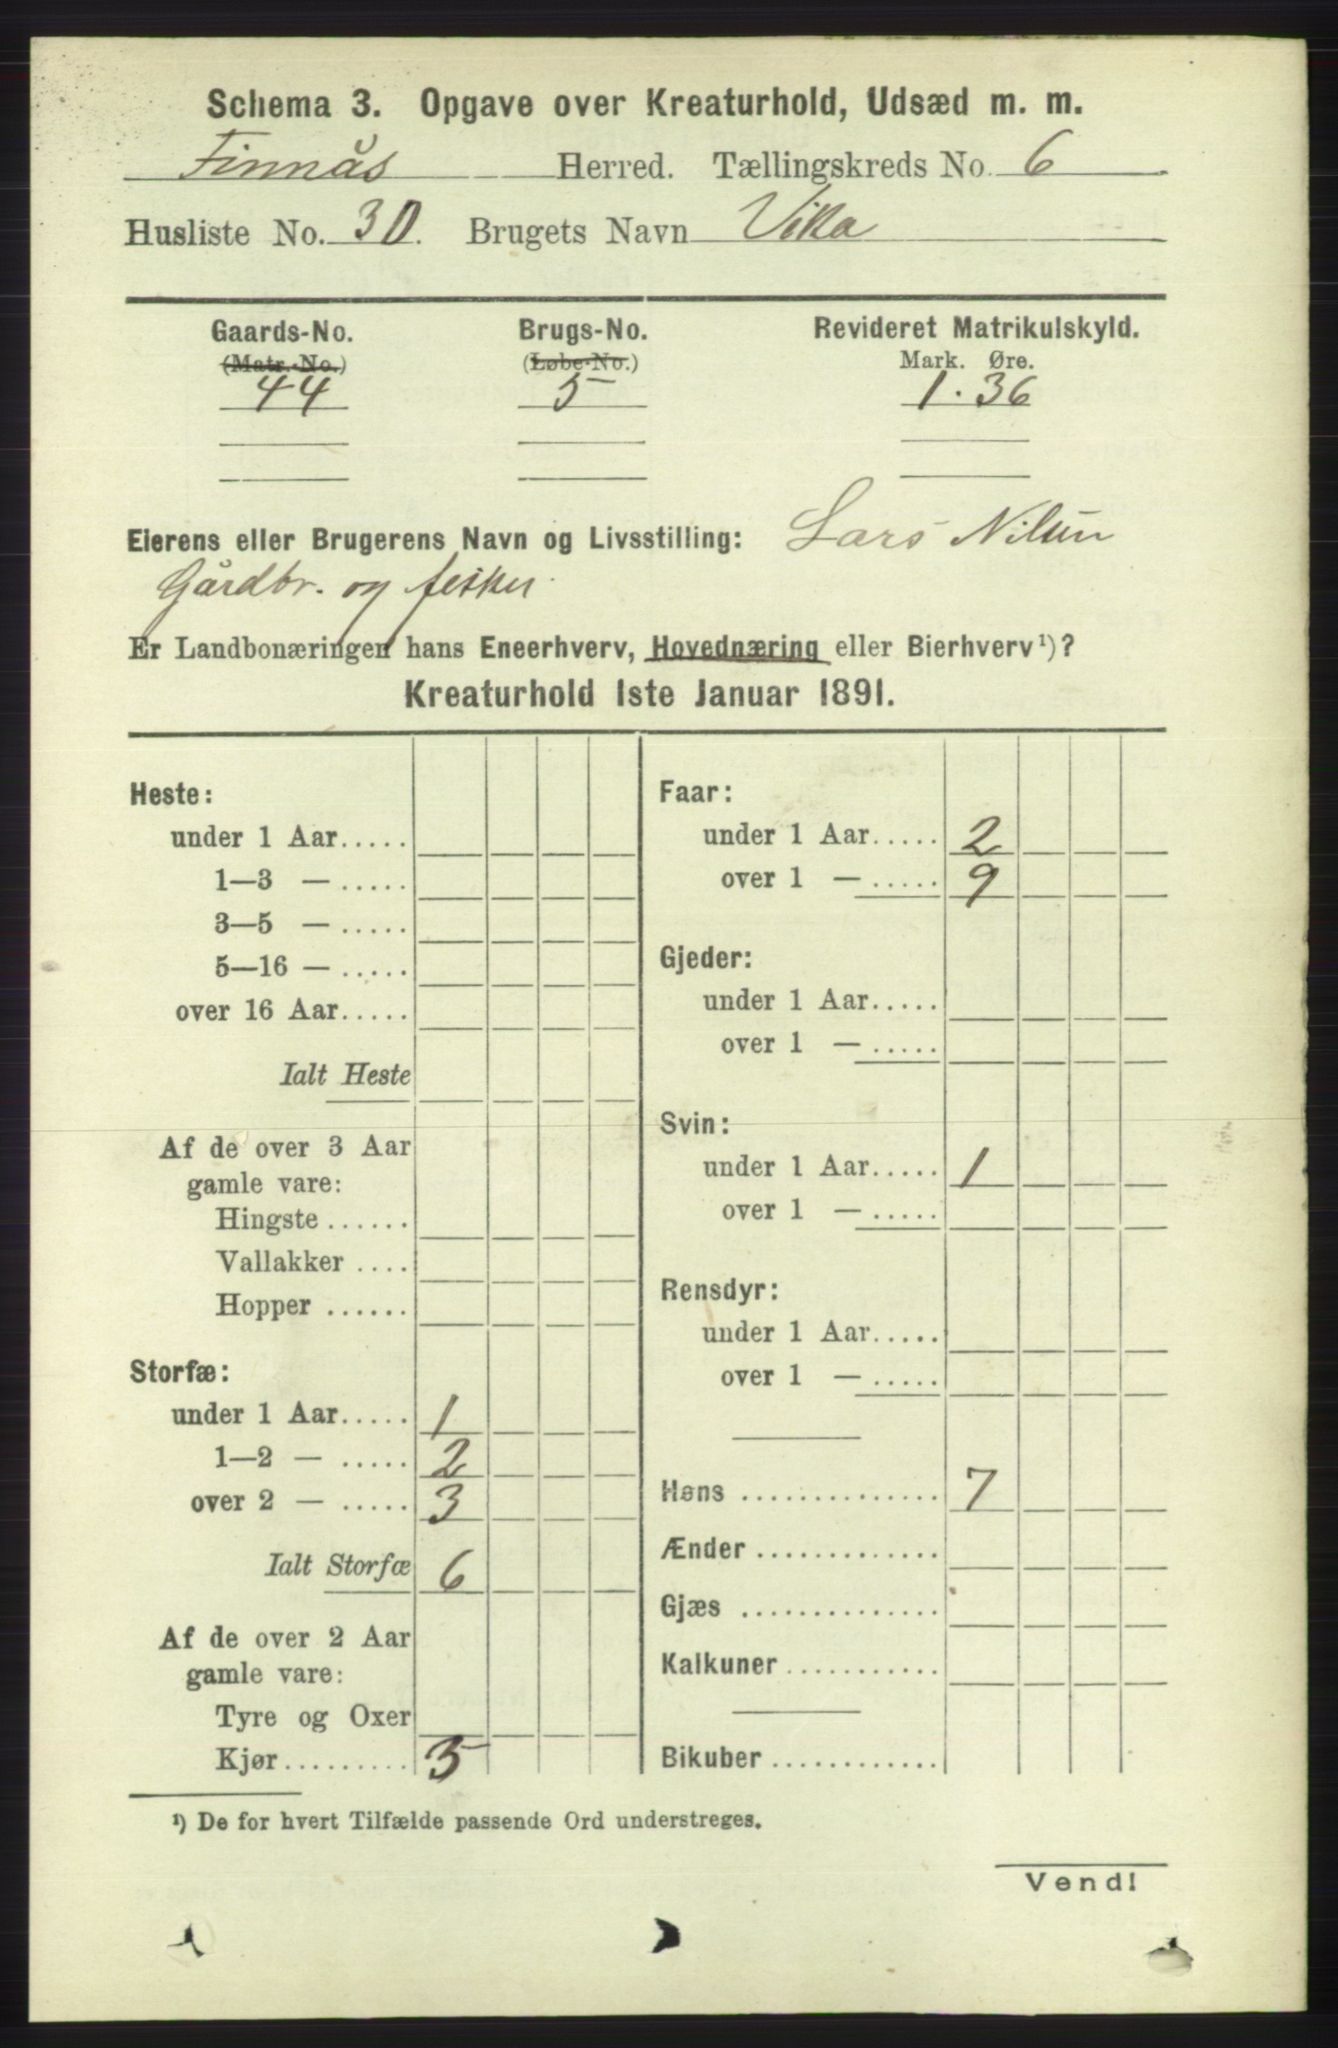 Schema 3. Opgave over Kreaturhold, Udsæd m. m.
Finnås Herred. Tællingskreds No. 6
Husliste No. 30. Brugets Navn Vika
Gaards-No. Brugs-No. Revideret Matrikulskyld.
(Matr.-No.) (Løbe-No.) Mark. Øre.
44 5 1.36
Eierens eller Brugerens Navn og Livsstilling: Lars Nilsen
Gårdbr. og fisker.
Er Landbonæringen hans Eneerhverv, Hovednæring eller Bierhverv¹)?
Kreaturhold 1ste Januar 1891.
Heste:
under 1 Aar.....
1—3 — .....
3—5 — .....
5—16 — .....
over 16 Aar.....
Ialt Heste
Af de over 3 Aar
gamle vare:
Hingste ......
Vallakker ....
Hopper ......
Storfæ:
under 1 Aar..... 1
1—2 — ..... 2
over 2 — ..... 3
Ialt Storfæ 6
Af de over 2 Aar
gamle vare:
Tyre og Oxer
Kjør......... 3
Faar:
under 1 Aar..... 2
over 1 — ..... 9
Gjeder:
under 1 Aar.....
over 1 — .....
Svin:
under 1 Aar..... 1
over 1 — .....
Rensdyr:
under 1 Aar.....
over 1 — .....
Høns ............... 7
Ænder ..............
Gjæs ...............
Kalkuner ...........
Bikuber ............
¹) De for hvert Tilfælde passende Ord understreges.
Vend!